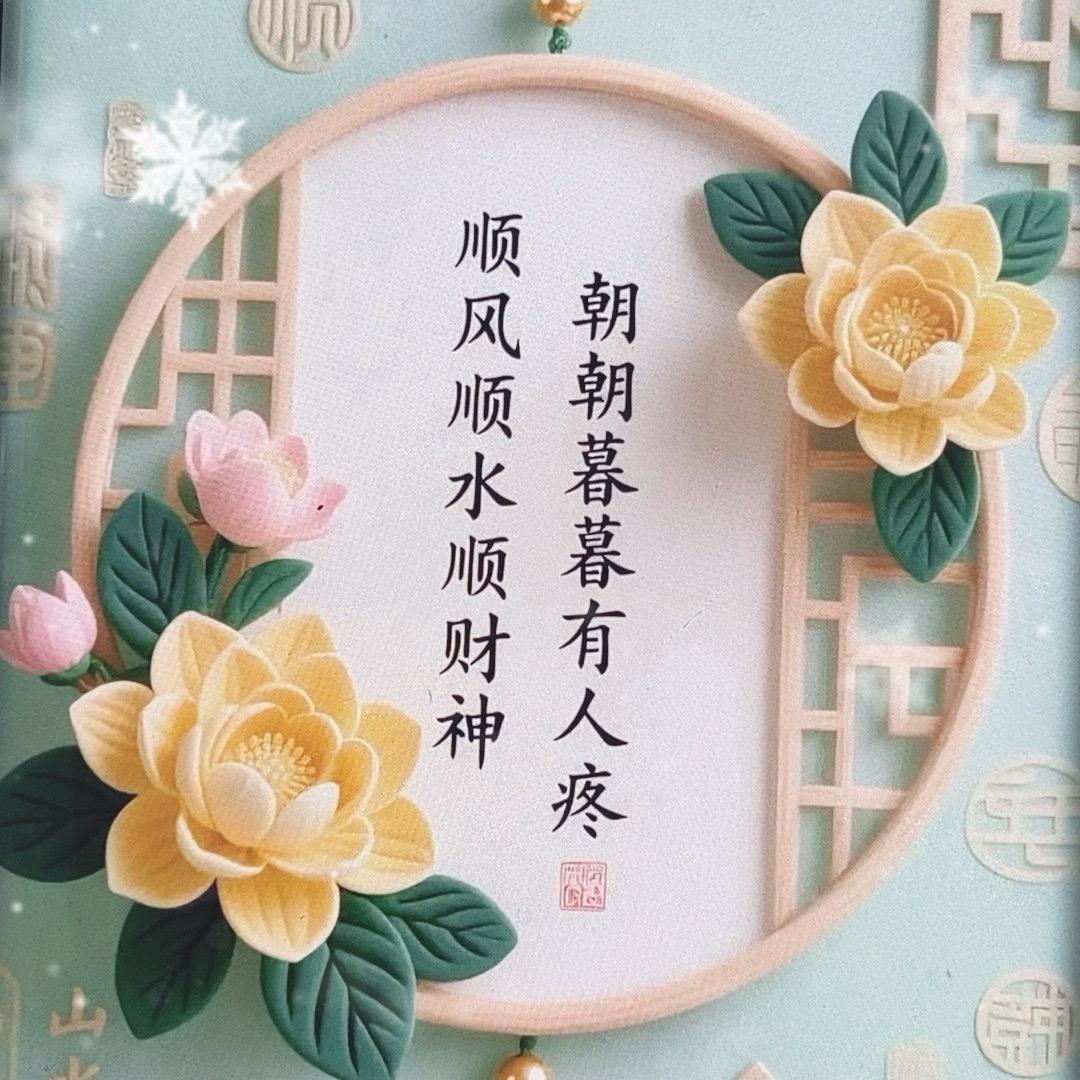 顺
顺风顺水顺财神
朝朝暮暮有人疼
山